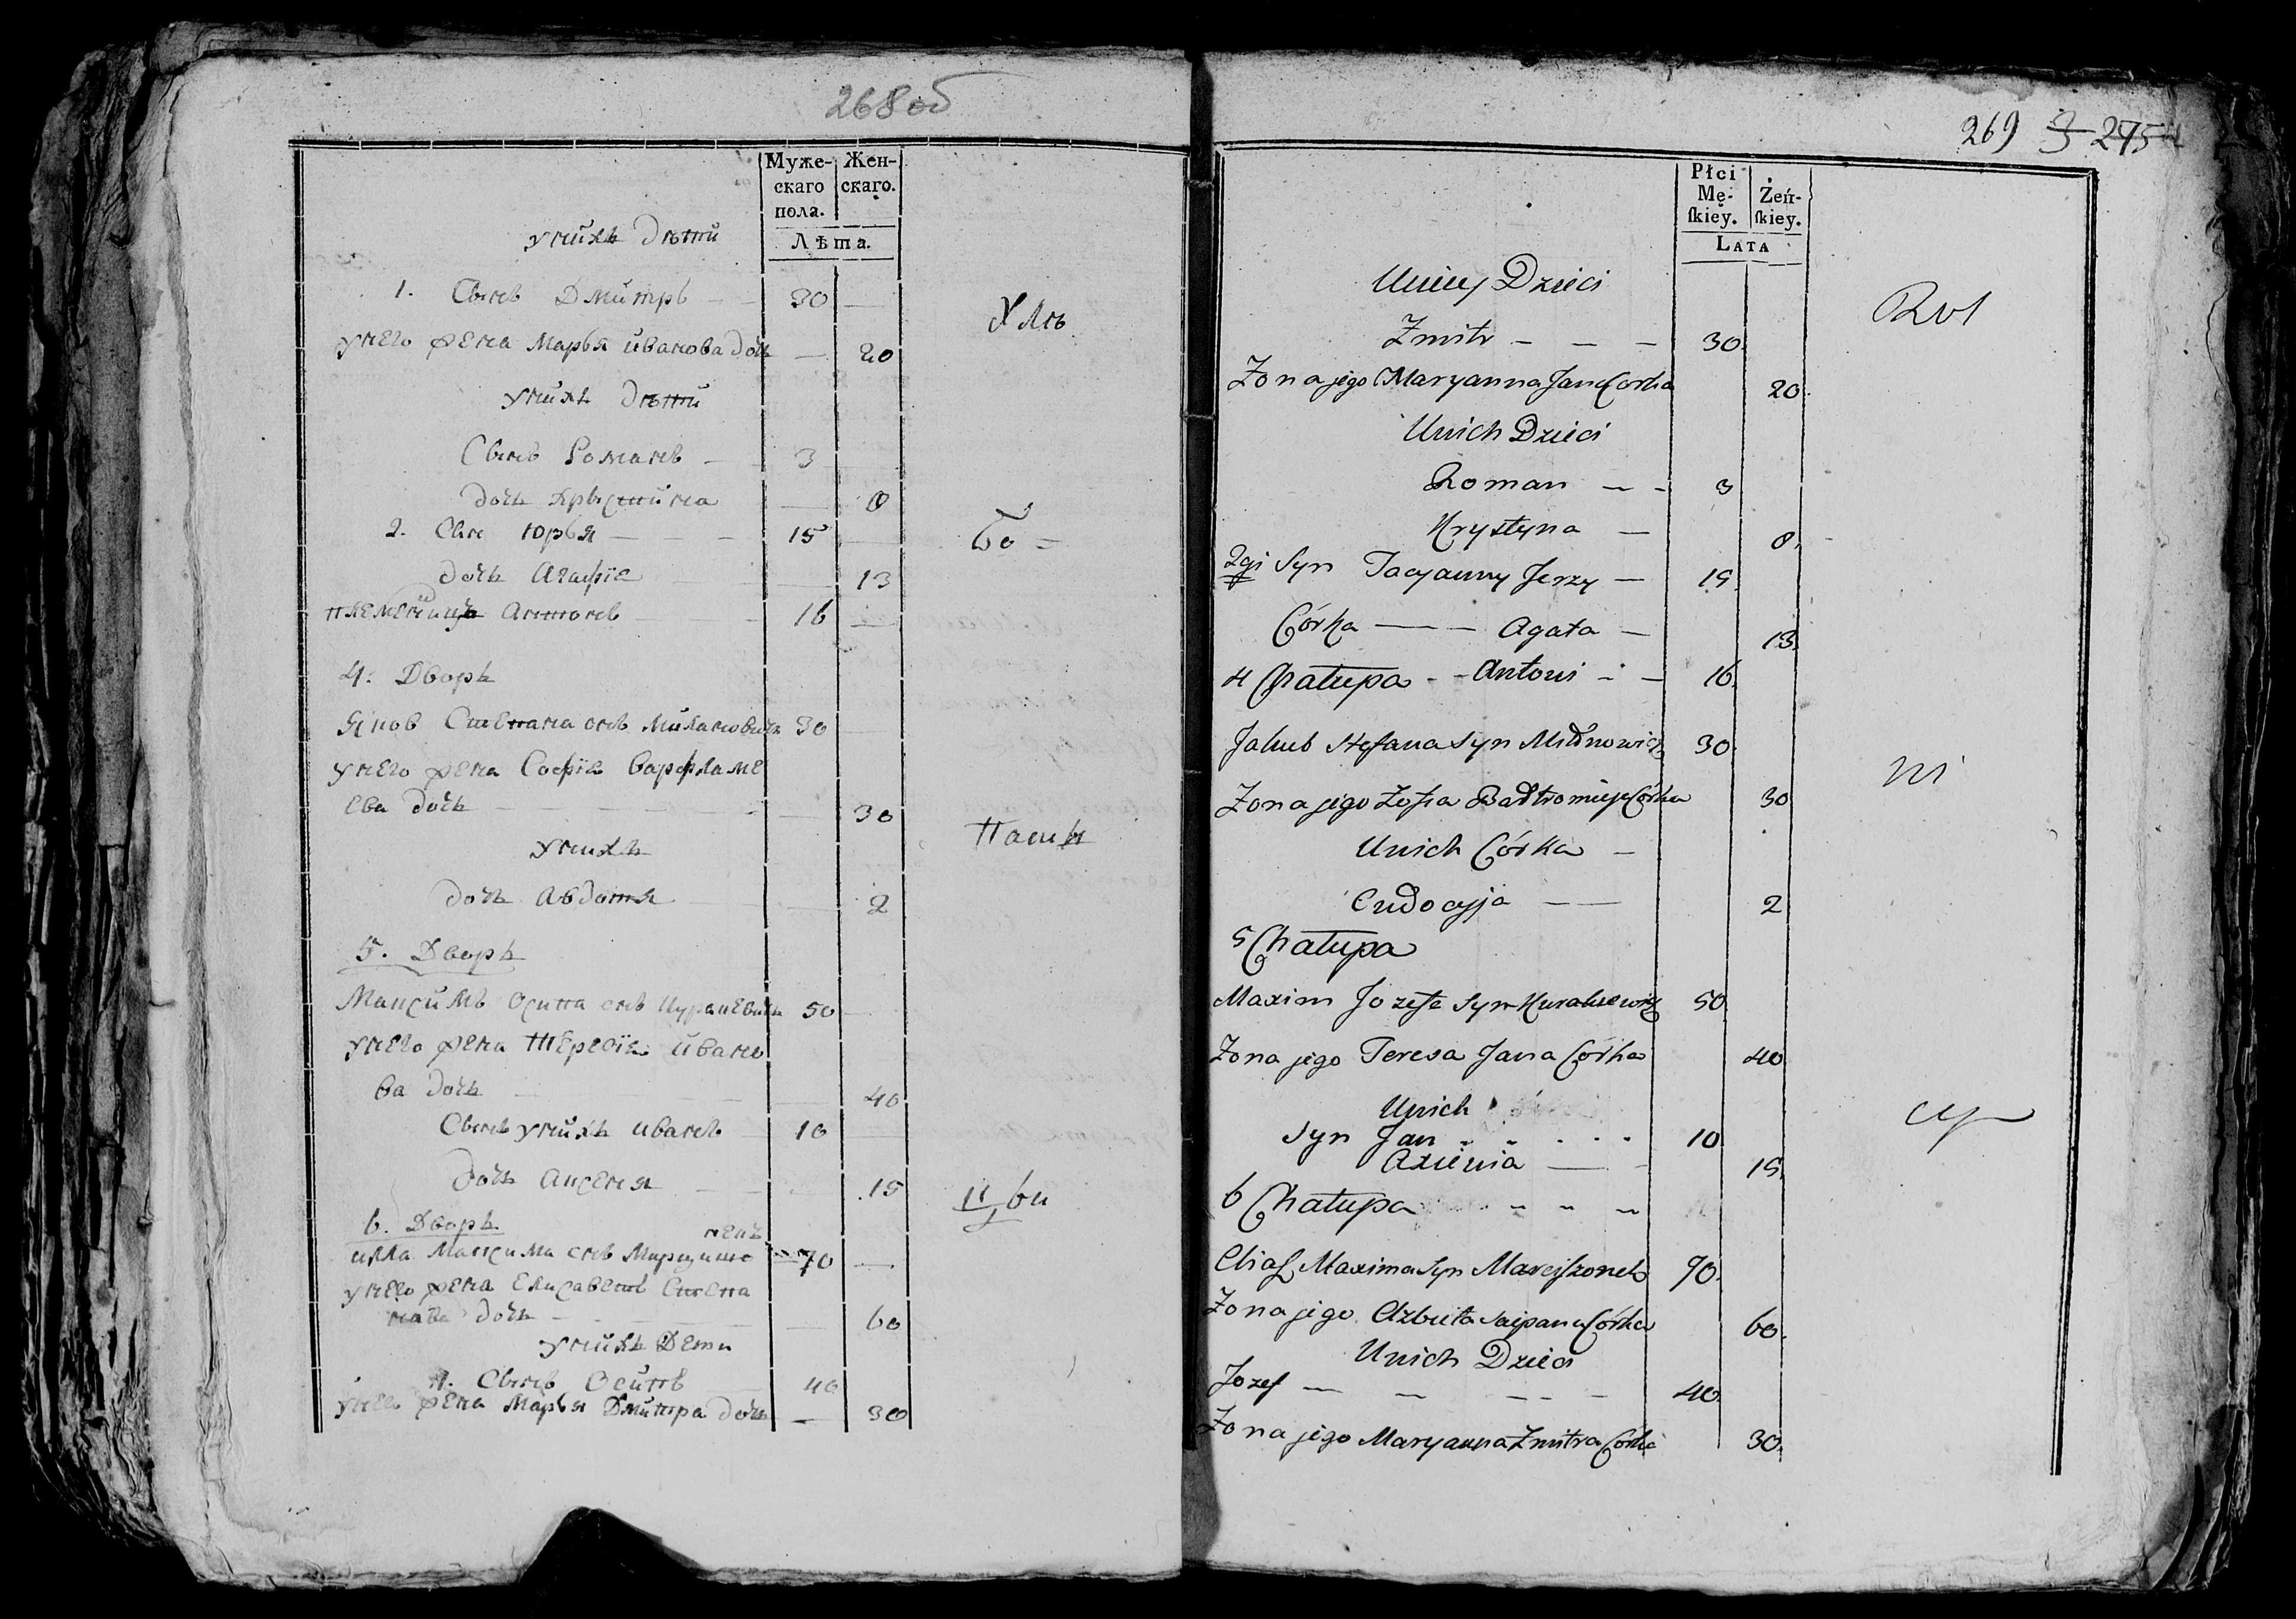 268 об
Муже- Жен-
скаго скаго.
пола.
Лѣта.
унихъ дѣти
1. Сынъ Дмитръ — 30 —
унего жена Марья иванова дочь — 20
унихъ дѣти
Сынъ Романъ — 3
дочь Крыстина — 0
2. Сын Юрья — — — 15 —
дочь Агафiа — 13
племеницъ Антонъ — 16 —
4. Дворъ
Яков Степана снъ Милановичъ 30
унего жена Софiа Варфламе
ева дочь — — — — 30
унихъ
дочь Авдотя — 2
5. Дворъ
Максимъ Осипа снъ Куракевичь 50 —
унего жена Тересiа ивано
ва дочь — 40
Сынъ унихъ иванъ 10 —
дочь Аксеня — 15
6. Дворъ
ненъ
илла Максима снъ Марцишо 70 —
унего жена Елисаветъ Степа
нава дочь — 60
унихъ Дети
1. Сынъ Осипъ 40
унего жена Марья Дмитра дочь — 30
Хлѣ
бо =
Паши
269 275
Płci
Mę- Żeń-
skiey. skiey.
LATA
Uniey Dzieci
Zmitr — — — 30.
Zona jego Maryanna Jana Corka 20.
Unich Dzieci
Roman — - 3
Krystyna — 0.
2gi Syn Tacyanny Jerzy — 15
Córka — — Agata — 13.
4 Chałupa - - Antoni - — 16.
Jakub Stefana Syn Milanowicz 30.
Zona jego Zofia Bałtromieja Córka 30
Unich Córka —
Eudocyja — — 2
5 Chałupa
Maxim Jozefa Syn Kurakiewicz 50
Zona jego Teresa Jana Córka 40
Unich
Syn Jan 10
Axienia — 15.
6 Chałupa
Eliasz Maxima Syn Marciszonek 70.
Zona jego Elzbieta Sciepana Córka 60.
Unich Dzieci
Jozef — — — — 40.
Zona jego Maryanna Zmitra Córka 30.
Rol
ni
cy